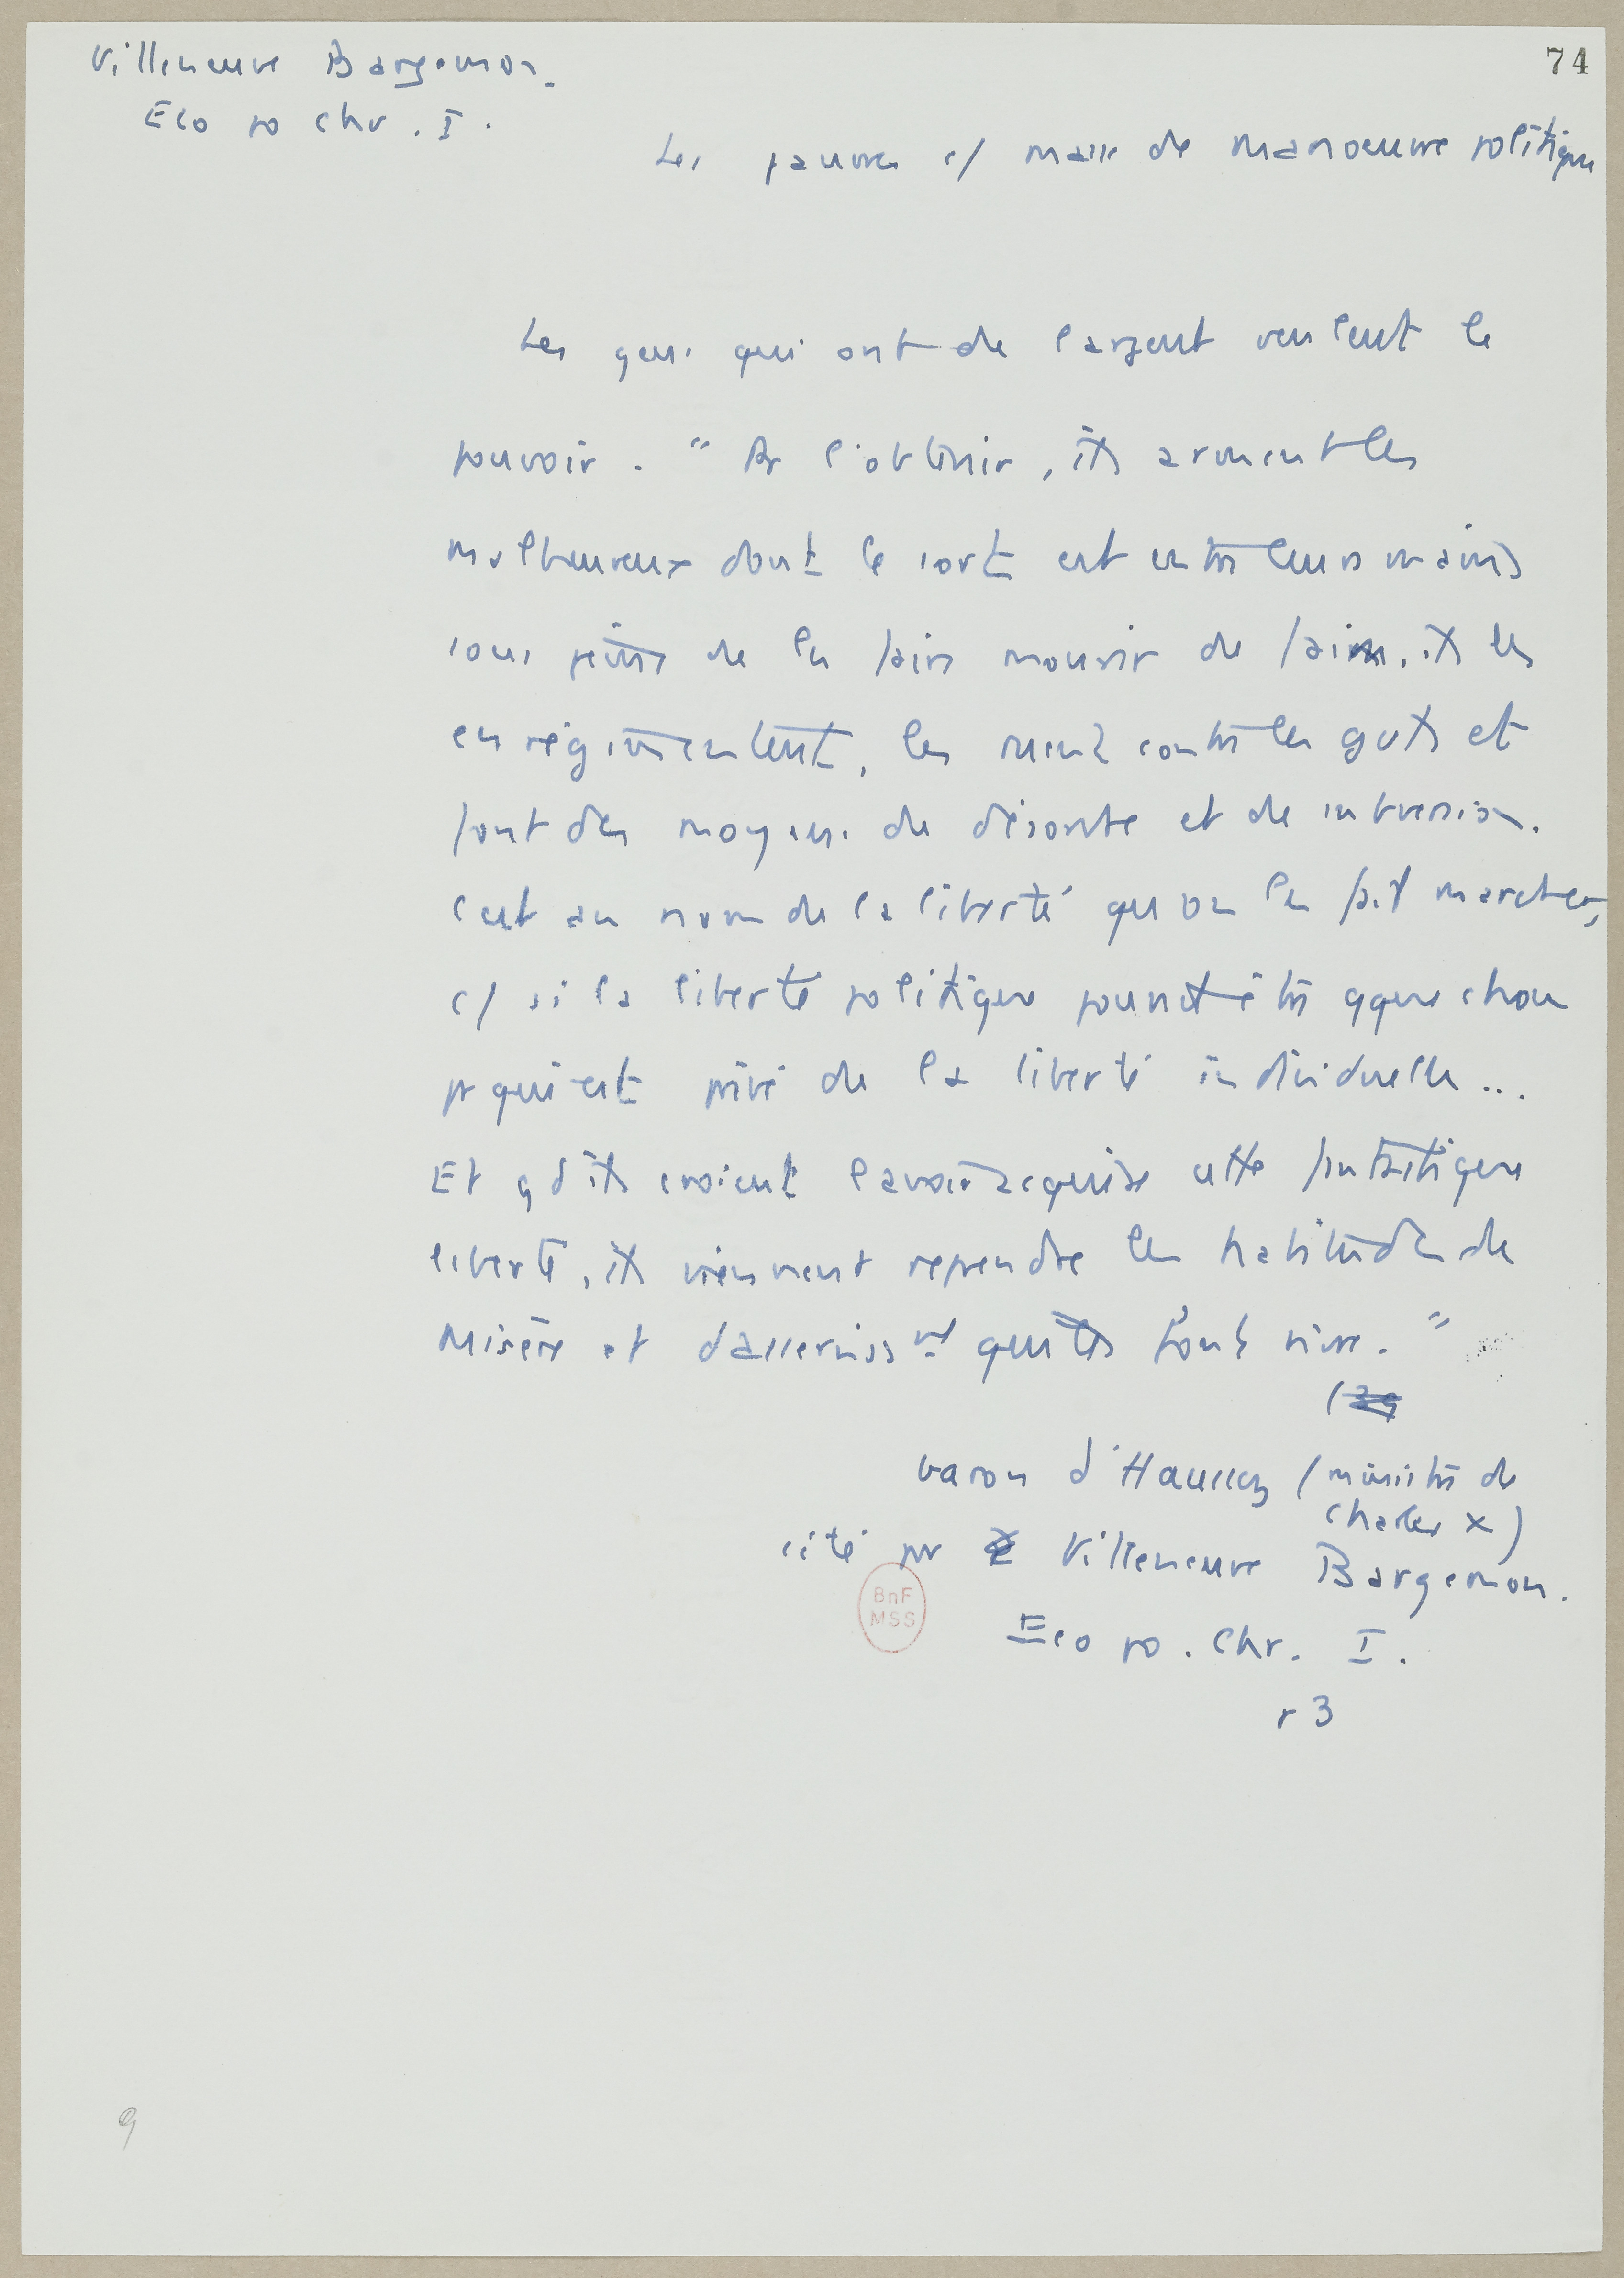 74
Villeneuve Bargemon.
Eco po chr. I.
Les pauvres c/ masse de manoeuvre politique
Les gens qui ont de l'argent veulent le
pouvoir. " Pr l'obtenir, ils arment les
malheureux dont le sort est entre leurs mains
sous peine de les faire mourir de faim, ils les
enrégimentent, les contre les gvts et
font des moyens de désordre et de subversion.
C'est au nom de la liberté qu'on les fait marcher,
c/ si la liberté politique pouvait être qque chose
pr qui est privé de la liberté individuelle...
Et qd ils croient l'avoir acquise cette fantastique
liberté, ils viennent reprendre les habitudes de
misère et d'asservisst qui les font vivre. "
baron d'Haussez (ministre de
Charles X)
cité par Villeneuve Bargemon.
Eco po. Chr. I.
r 3
BnF
MSS
9